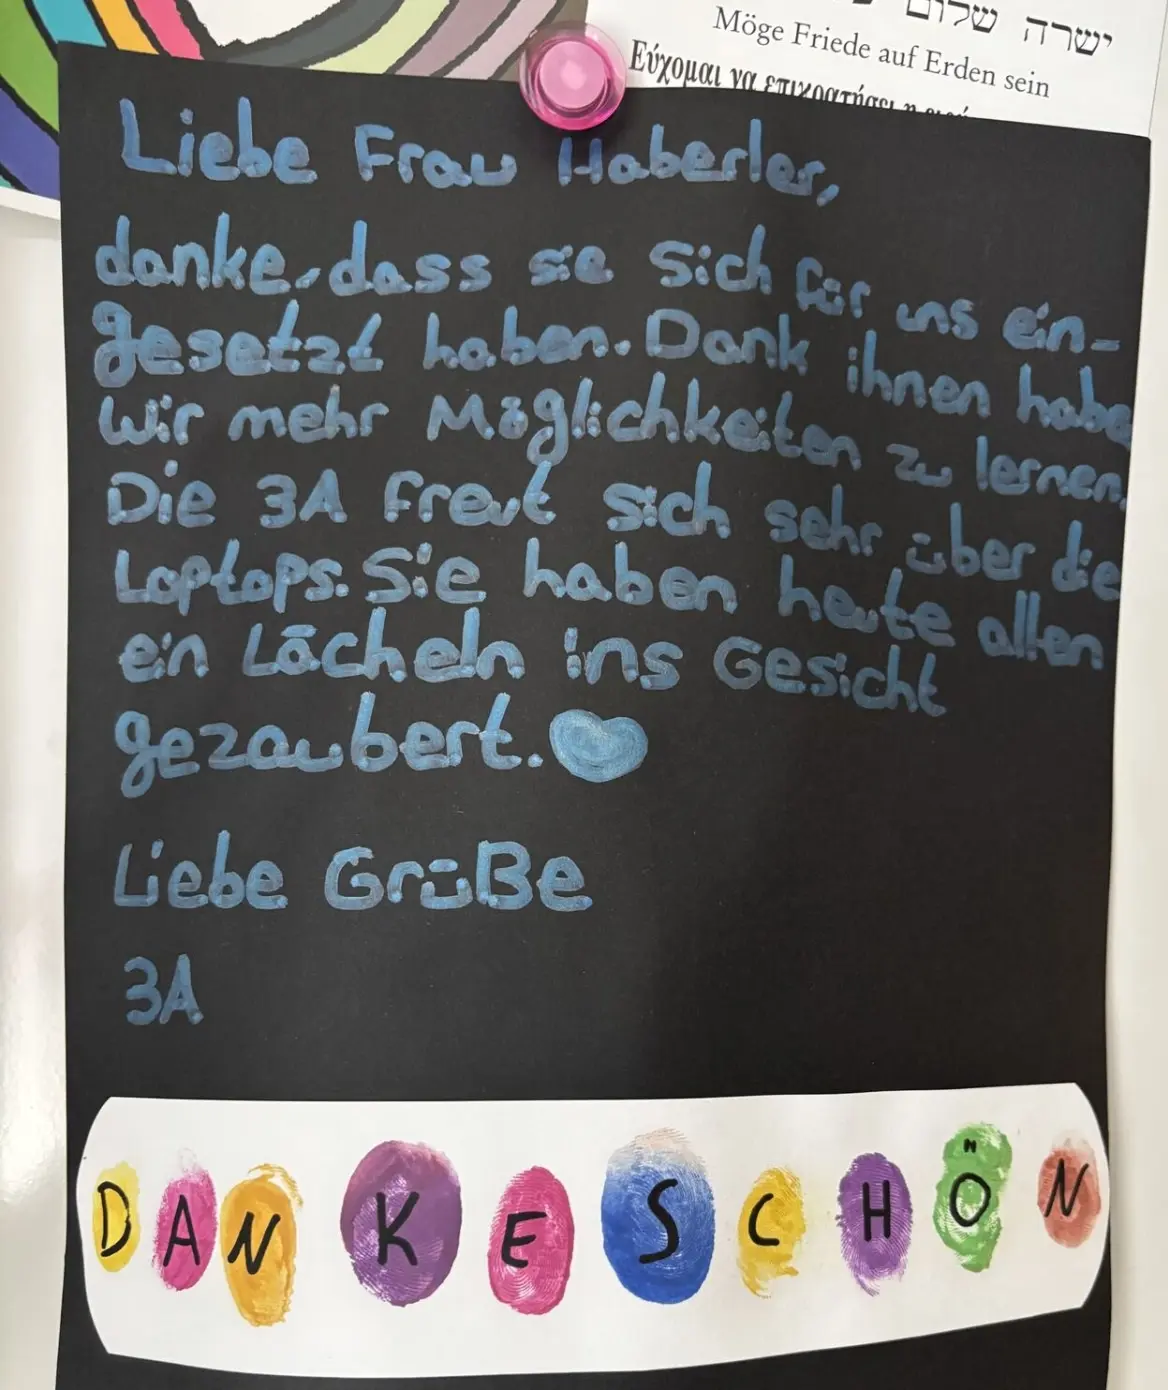 ישרה שלום
Möge Friede auf Erden sein
Εύχομαι να επικρατήσει η
Liebe Frau Haberler,
danke, dass sie sich für uns ein-
gesetzt haben. Dank ihnen habe
wir mehr Möglichkeiten zu lernen.
Die 3A freut sich sehr über die
Laptops. Sie haben heute allen
ein Lächeln ins Gesicht
gezaubert.
Liebe Grüße
3A
DANKESCHÖN